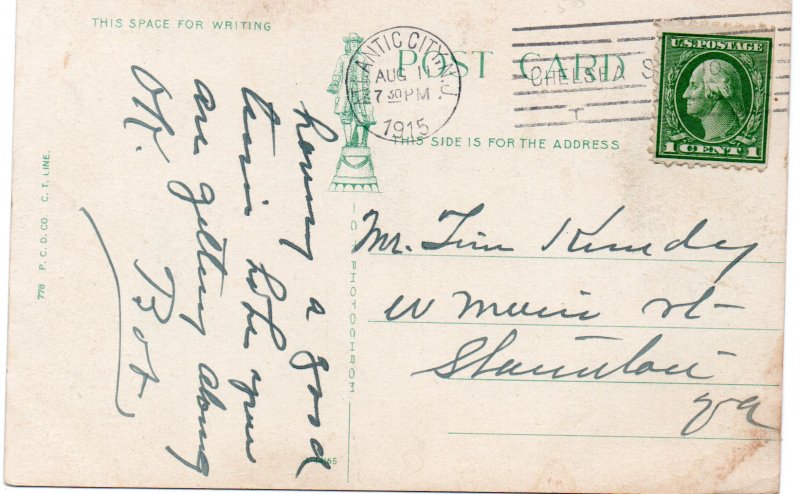 THIS SPACE FOR WRITING
POST CARD
THIS SIDE IS FOR THE ADDRESS
ATLANTIC CITY, N.J.
AUG 11
7 30 PM
1915
CHELSEA S
U.S. POSTAGE
1 CENT 1
having a good
time hope you
are getting along
OK.
Bob
Mr. Tim
W Main st
Staunton
Va
778 P. C. D. CO. C. T. LINE.
PHOTOCHROM